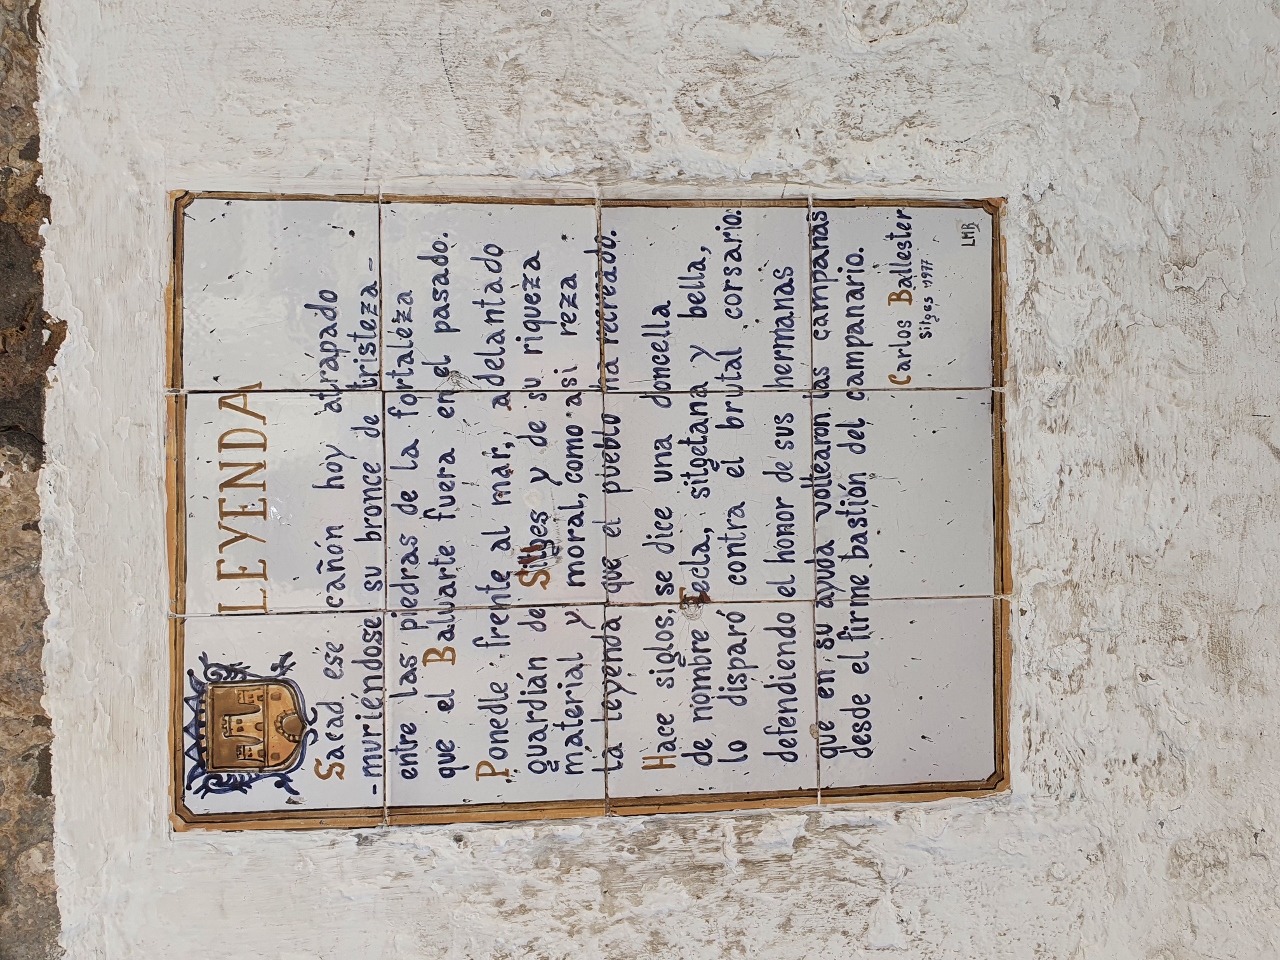 LEYENDA
Sacad ese cañón hoy atrapado
-muriéndose su bronce de tristeza-
entre las piedras de la fortaleza
que el Baluarte fuera en el pasado.
Ponedle frente al mar, adelantado
guardián de Sitges y de su riqueza
material y moral, como asi reza
la leyenda que el pueblo ha recreado.
Hace siglos, se dice una doncella
de nombre Tecla, sitgetana y bella,
lo disparó contra el brutal corsario:
defendiendo el honor de sus hermanas
que en su ayuda voltearon las campanas
desde el firme bastión del campanario.
Carlos Ballester
Sitges 1977
LMR